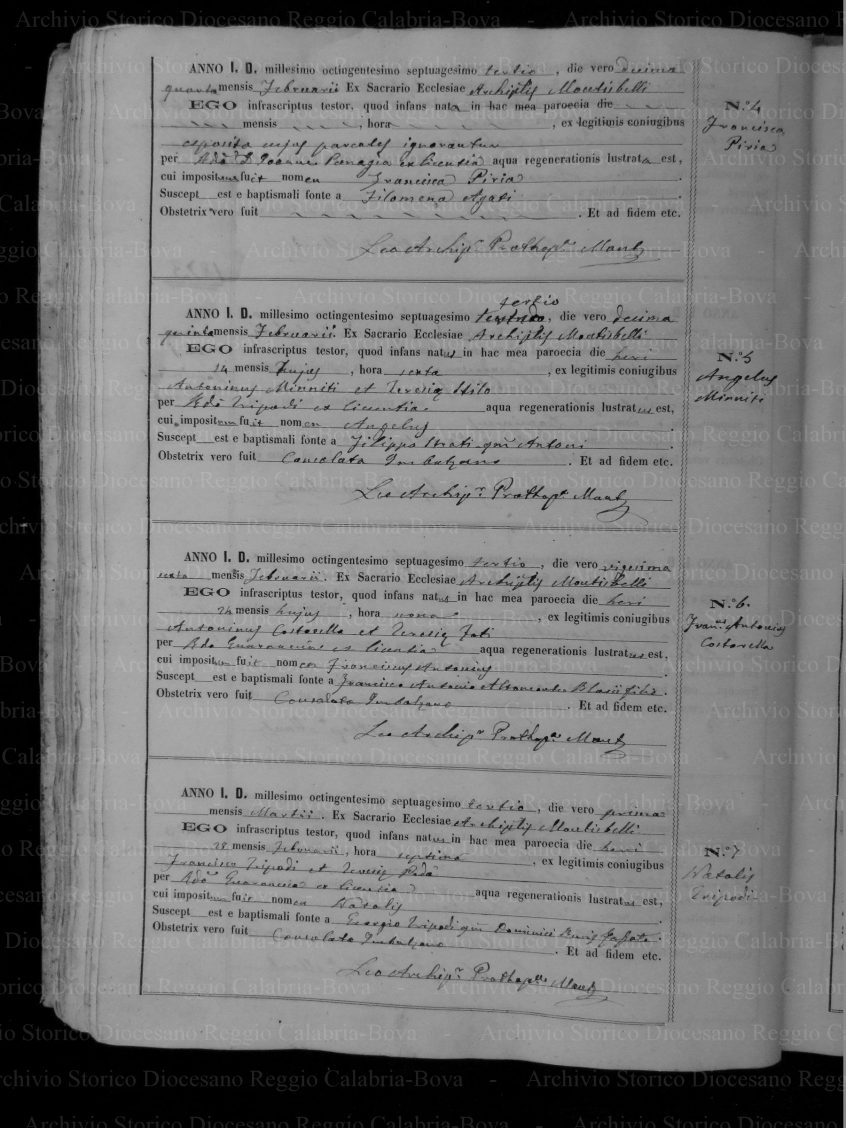 ANNO I. D. millesimo octingentesimo septuagesimo tertio, die vero decima
quarta mensis Februarii Ex Sacrario Ecclesiae Archiplis Montisbelli
EGO infrascriptus testor, quod infans nata in hac mea paroecia die
mensis , hora , ex legitimis coniugibus
esposita cujus parentes ignorantur
per Adm D. Joanne ex licentia aqua regenerationis lustrata est,
cui impositum fuit nomen Francisca Piria
Suscept est e baptismali fonte a Filomena Agati
Obstetrix vero fuit . Et ad fidem etc.
Leo Archipr. Prothopa. Mantz
N.º 4
Francisca
Piria
ANNO I. D. millesimo octingentesimo septuagesimo tertio, die vero decima
quinta mensis Februarii. Ex Sacrario Ecclesiae Archiplis Montisbelli
EGO infrascriptus testor, quod infans natus in hac mea paroecia die heri
14 mensis hujus , hora sexta , ex legitimis coniugibus
Antoninus Minniti et Teresia Stilo
per Adm Tripodi ex licentia aqua regenerationis lustratus est,
cui impositum fuit nomen Angelus
Suscept est e baptismali fonte a Filippo Strati qm Antoni
Obstetrix vero fuit Consolata Imbalzano . Et ad fidem etc.
Leo Archipr. Prothopa. Mantz
N.º 5
Angelus
Minniti
ANNO I. D. millesimo octingentesimo septuagesimo tertio, die vero vigesima
sexta mensis Februarii. Ex Sacrario Ecclesiae Archiplis Montisbelli
EGO infrascriptus testor, quod infans natus in hac mea paroecia die heri
24 mensis hujus , hora nona , ex legitimis coniugibus
Antoninus Costarella et Teresia Foti
per Adm Guarnaccia ex licentia aqua regenerationis lustratus est,
cui impositum fuit nomen Franciscus Antonius
Suscept est e baptismali fonte a Francisco Antonio Blasii filio.
Obstetrix vero fuit Consolata Imbalzano . Et ad fidem etc.
Leo Archipr. Prothopa. Mantz
N.º 6.
Franus Antonius
Costarella
ANNO I. D. millesimo octingentesimo septuagesimo tertio, die vero prima
mensis Martii. Ex Sacrario Ecclesiae Archiplis Montisbelli
EGO infrascriptus testor, quod infans natus in hac mea paroecia die heri
28 mensis Februarii, hora septima , ex legitimis coniugibus
Francisco Tripodi et Teresia
per Adm Guarnaccia ex licentia aqua regenerationis lustratus est,
cui impositum fuit nomen Natalis
Suscept est e baptismali fonte a Georgio Tripodi qm Dominici
Obstetrix vero fuit Consolata Imbalzano . Et ad fidem etc.
Leo Archipr. Prothopa. Mantz
N.º 7
Natalis
Tripodi
Archivio Storico Diocesano Reggio Calabria-Bova